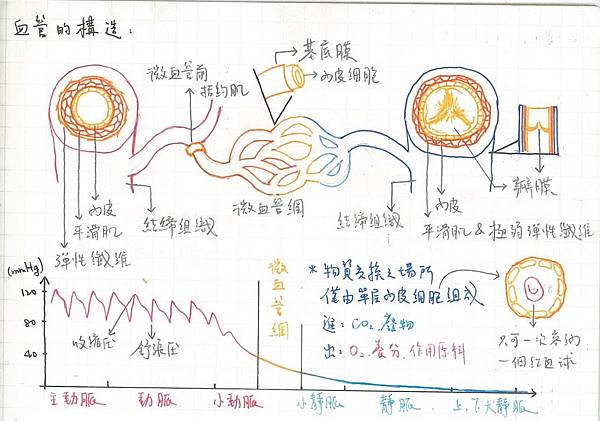 血管的構造:
基底膜
內皮細胞
微血管前
括約肌
微血管網
瓣膜
內皮
平滑肌
彈性纖維
結締組織
結締組織
內皮
平滑肌 & 極弱彈性纖維
(mmHg)
120
80
40
收縮壓
舒張壓
微血管網
* 物質交換之場所
僅由單層內皮細胞組成
進: CO₂. 廢物
出: O₂. 養分. 作用原料
只可一次容納
一個紅血球
主動脈
動脈
小動脈
小靜脈
靜脈
上.下大靜脈